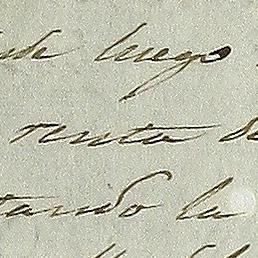 de luego
renta de
tando la